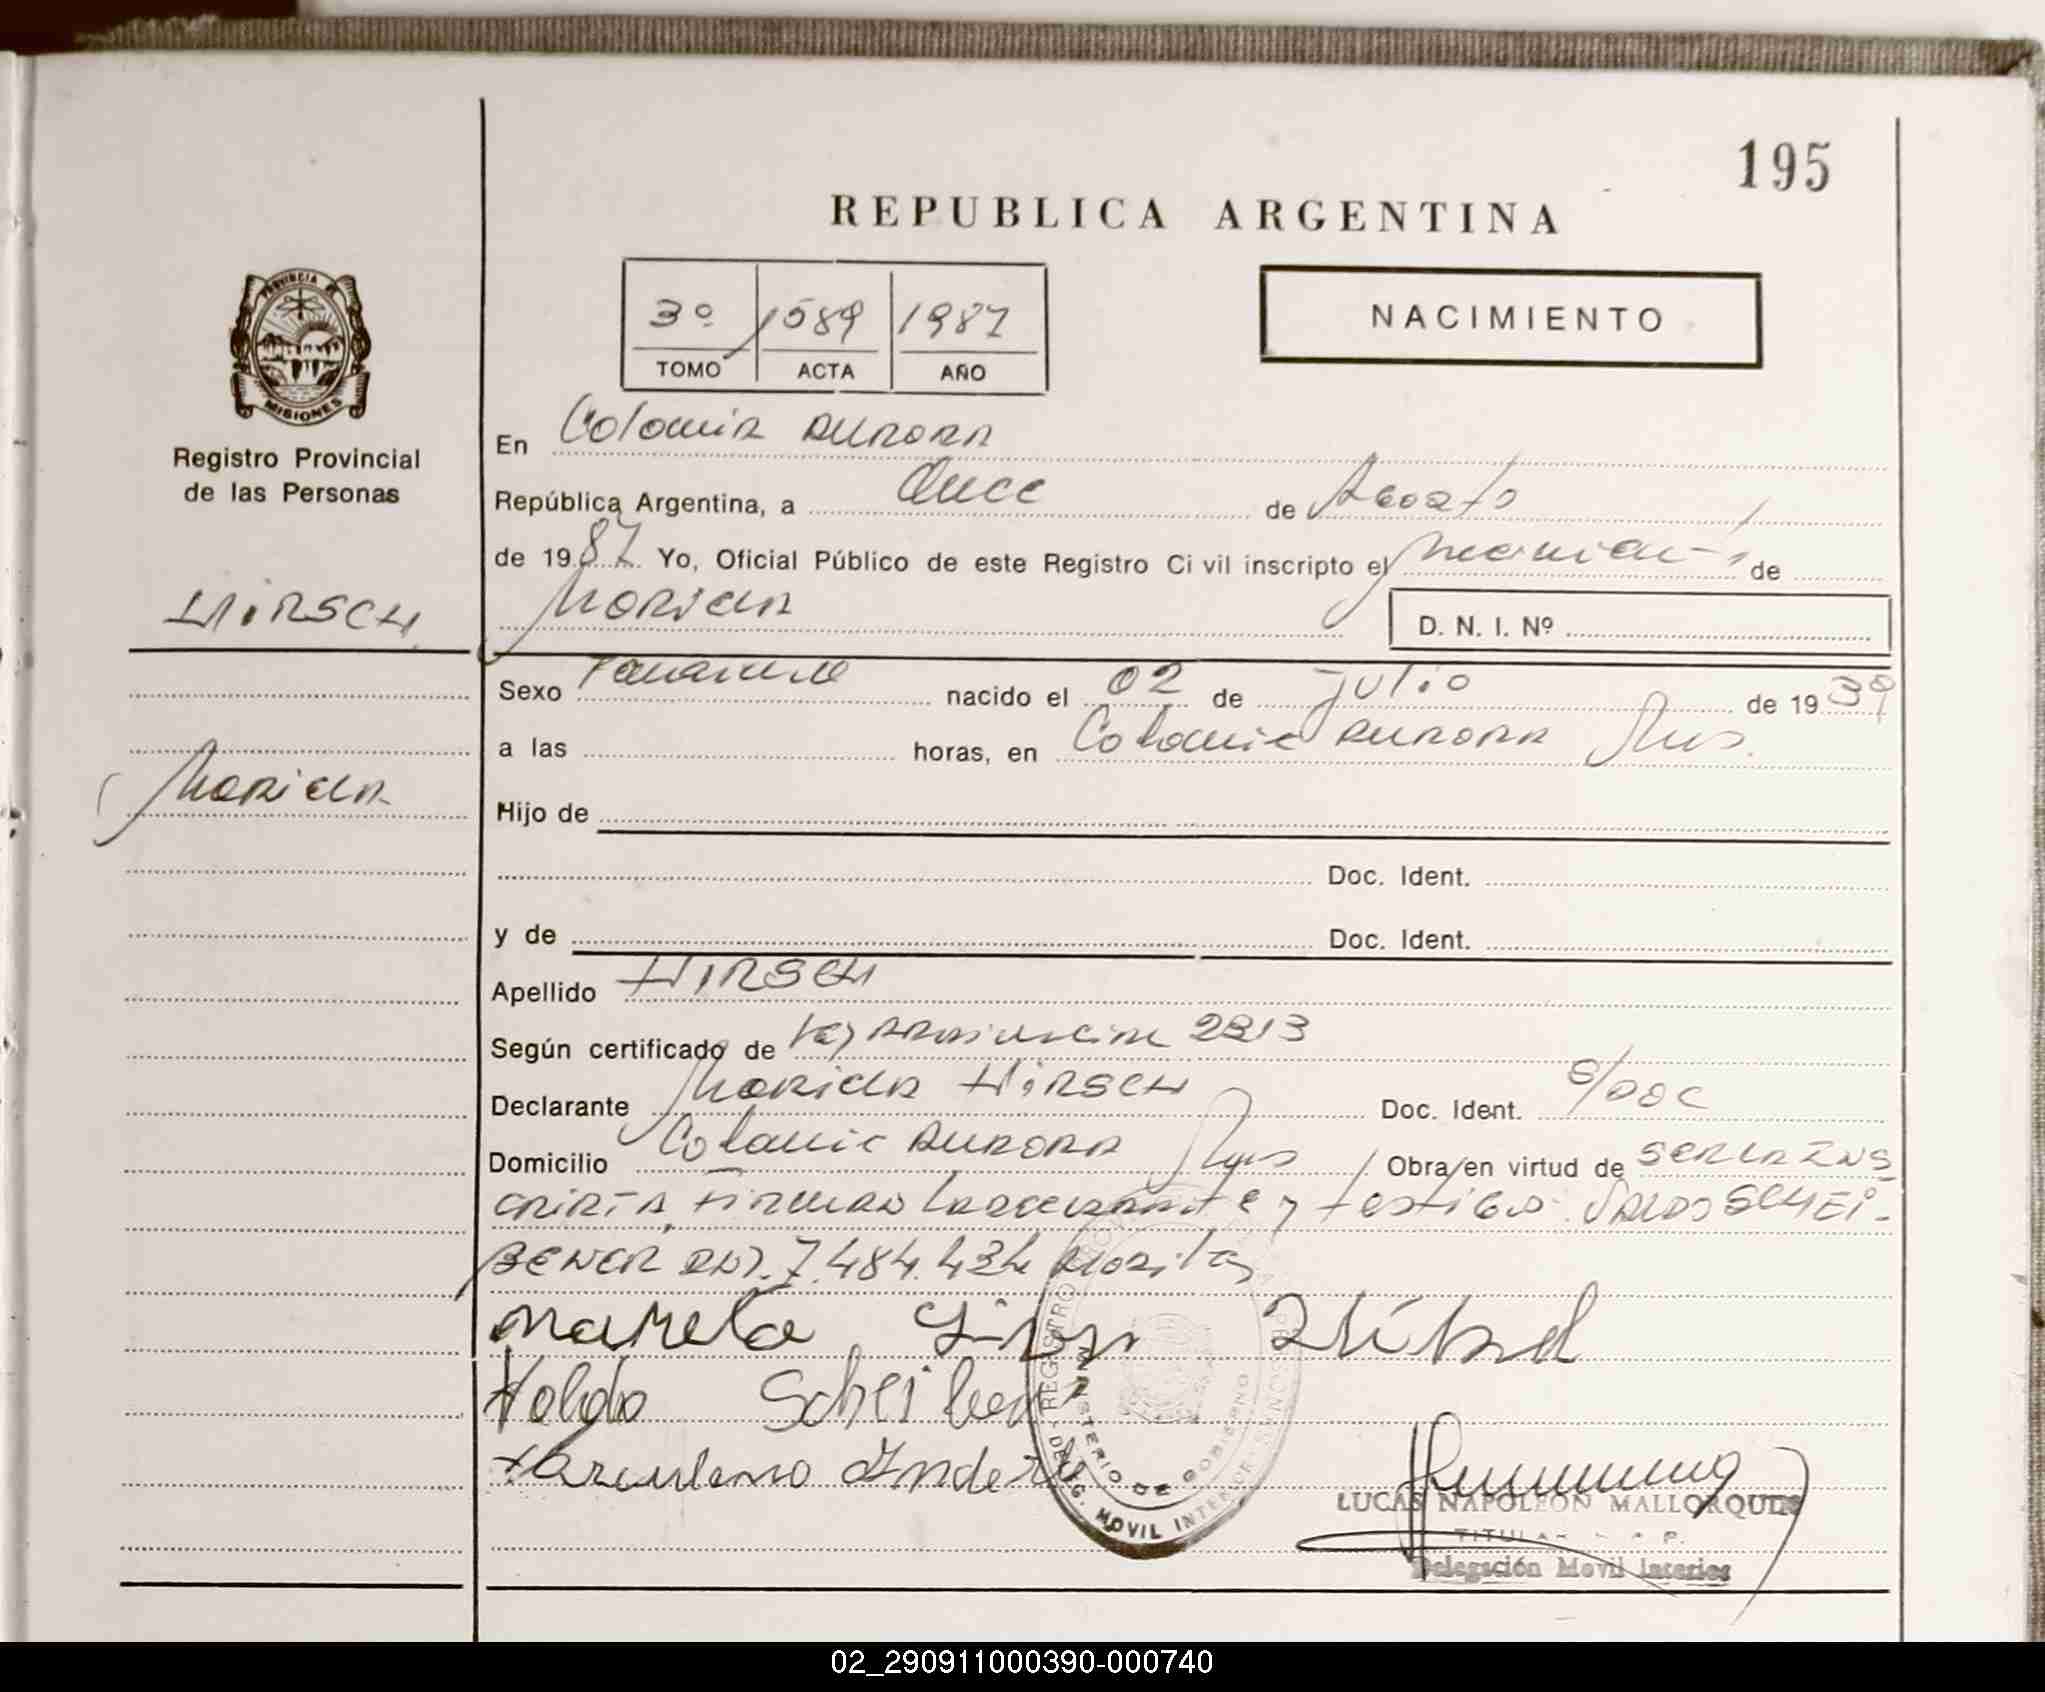 195
REPUBLICA ARGENTINA
3º 1589 1987
TOMO ACTA AÑO
NACIMIENTO
PROVINCIA DE
MISIONES
Registro Provincial
de las Personas
HIRSCH
Marida
En Colonia Aurora
República Argentina, a Once de Agosto
de 1987. Yo, Oficial Público de este Registro Civil inscripto el nacimien- de
Marida
D. N. I. Nº
Sexo Femenino nacido el 02 de Julio de 1939
a las horas, en Colonia Aurora Mns.
Hijo de
Doc. Ident.
y de Doc. Ident.
Apellido HIRSCH
Según certificado de Ley Provincial 2213
Declarante Marida HIRSCH Doc. Ident. S/DOC
Domicilio Colonia Aurora Mns Obra en virtud de ser la Ins
cripta, Firman la declarante y testigo. Valdo SCHEI-
BENER DNI. 7.484.434
Valdo Scheiben
REGISTRO
MINISTERIO DE GOBIERNO
DELEG. MOVIL INTERIOR
LUCAS NAPOLEON MALLORQUIN
TITULAR
Delegación Movil Interior
02_290911000390-000740